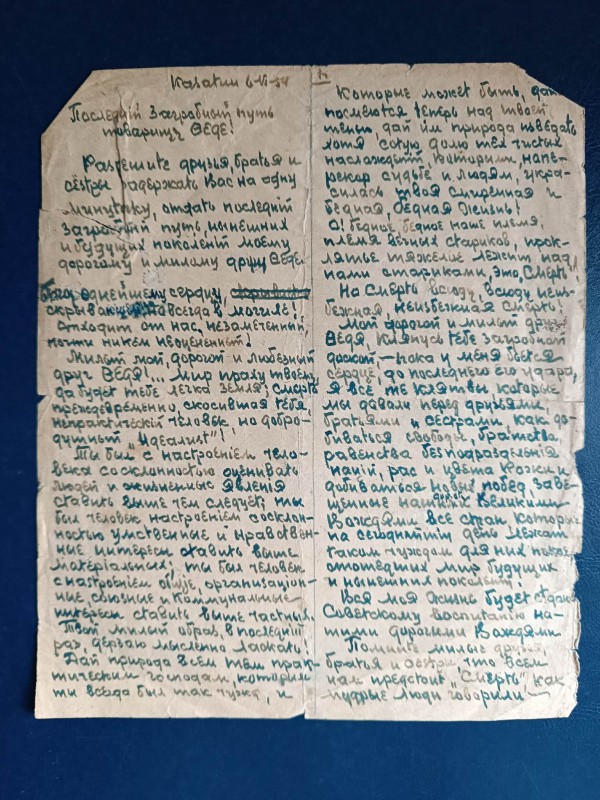 Kasatin 6-VI-54
Последній загробный путь
товарищу ѲЕДЕ!
Разтешите друзья, братья и
сёстры задержать Вас на одну
минутку, отдать последній
загробный путь, нынешних
и будущих поколеній моему
дорогому и милому другу Ѳеде.
сердцу,
скрывающ навсегда в могиле!..
Отходит от нас, незамеченный,
почти никем неоцененный.
Милый мой, дорогой и любезный
друг Ѳедя!... Мир праху твоем
да будет тебе легка земля, смерть
преждевременно, скосившая тебя,
непрактическій человек, но добро-
душный „идеалист"!
Ты был с настроением чело-
века сосклонностю оценивать
людей и жизненные явления
ставить выше чем следует; ты
был человек настроением сосклон-
ностью умственные и нравствен-
ные интересы ставить выше
материальных; ты был человек
с настроением общіе, организацион-
ные, союзные и коммунальные
интересы ставить выше частных.
Твой милый образ, в последній
раз, дерзаю мысленно ласкать!
Дай природа всем тем прак-
тическим господам, которым
ты всегда был так чужд, и
Которые может быть, даж
посмеются теперь над твоей
тенью, дай им природа изведать
хотя сотую долю тех чистых
наслаждений, которыми, напе-
рекор судьбе и людям, укра-
силась твоя смиренная и
бедная, бедная жизнь!
О! бедное, бедное наше племя,
племя вечных стариков, прок-
лятье тяжелое лежит над
нами стариками, это, Смерть"
На Смерть всюду, всюду неиз-
бежная, неизбежная смерть!
Мой дорогой и милый друг
Ѳедя, клянусь тебе загробной
доской,—пока у меня бьется
сердце, до последнего его удара,
я все те клятвы которые
мы давали перед друзьями,
братьями и сёстрами, как до-
биваться свободы, братства,
равенства без подразделенія
націй, рас и цвета кожи и
добиваться новых побед, заве-
щенные нашими Великими
Вождями все стран которые
на сегоднашній день лежат
таком чуждом для них покое
отошедших мир будущих
и нынешних поколеній!
Вся моя жизнь будет отдана
Советскому воспитанію на-
шими дорогими Вождями
Помните милые друзья,
братья и сёстры, что всем
нам предстоит „Смерть", как
мудрые люди говорили—